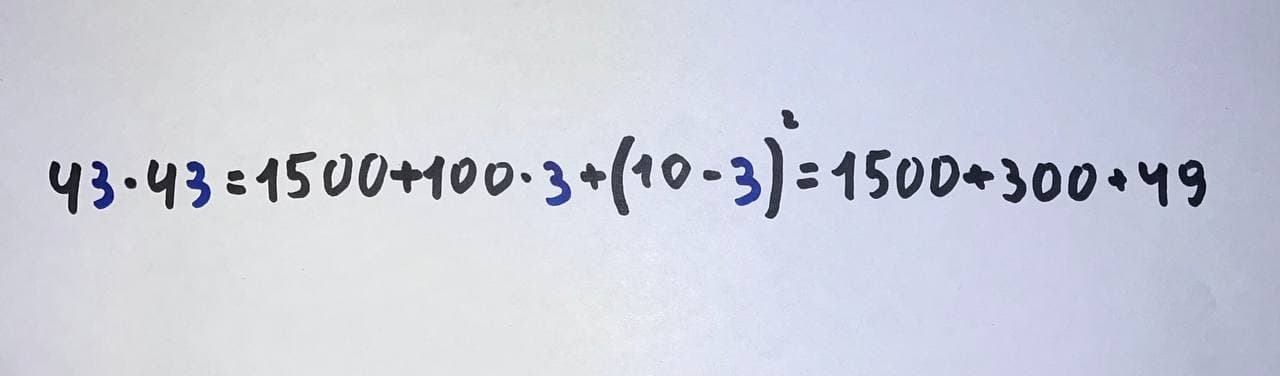 43·43=1500+100·3+(10-3)²=1500+300+49